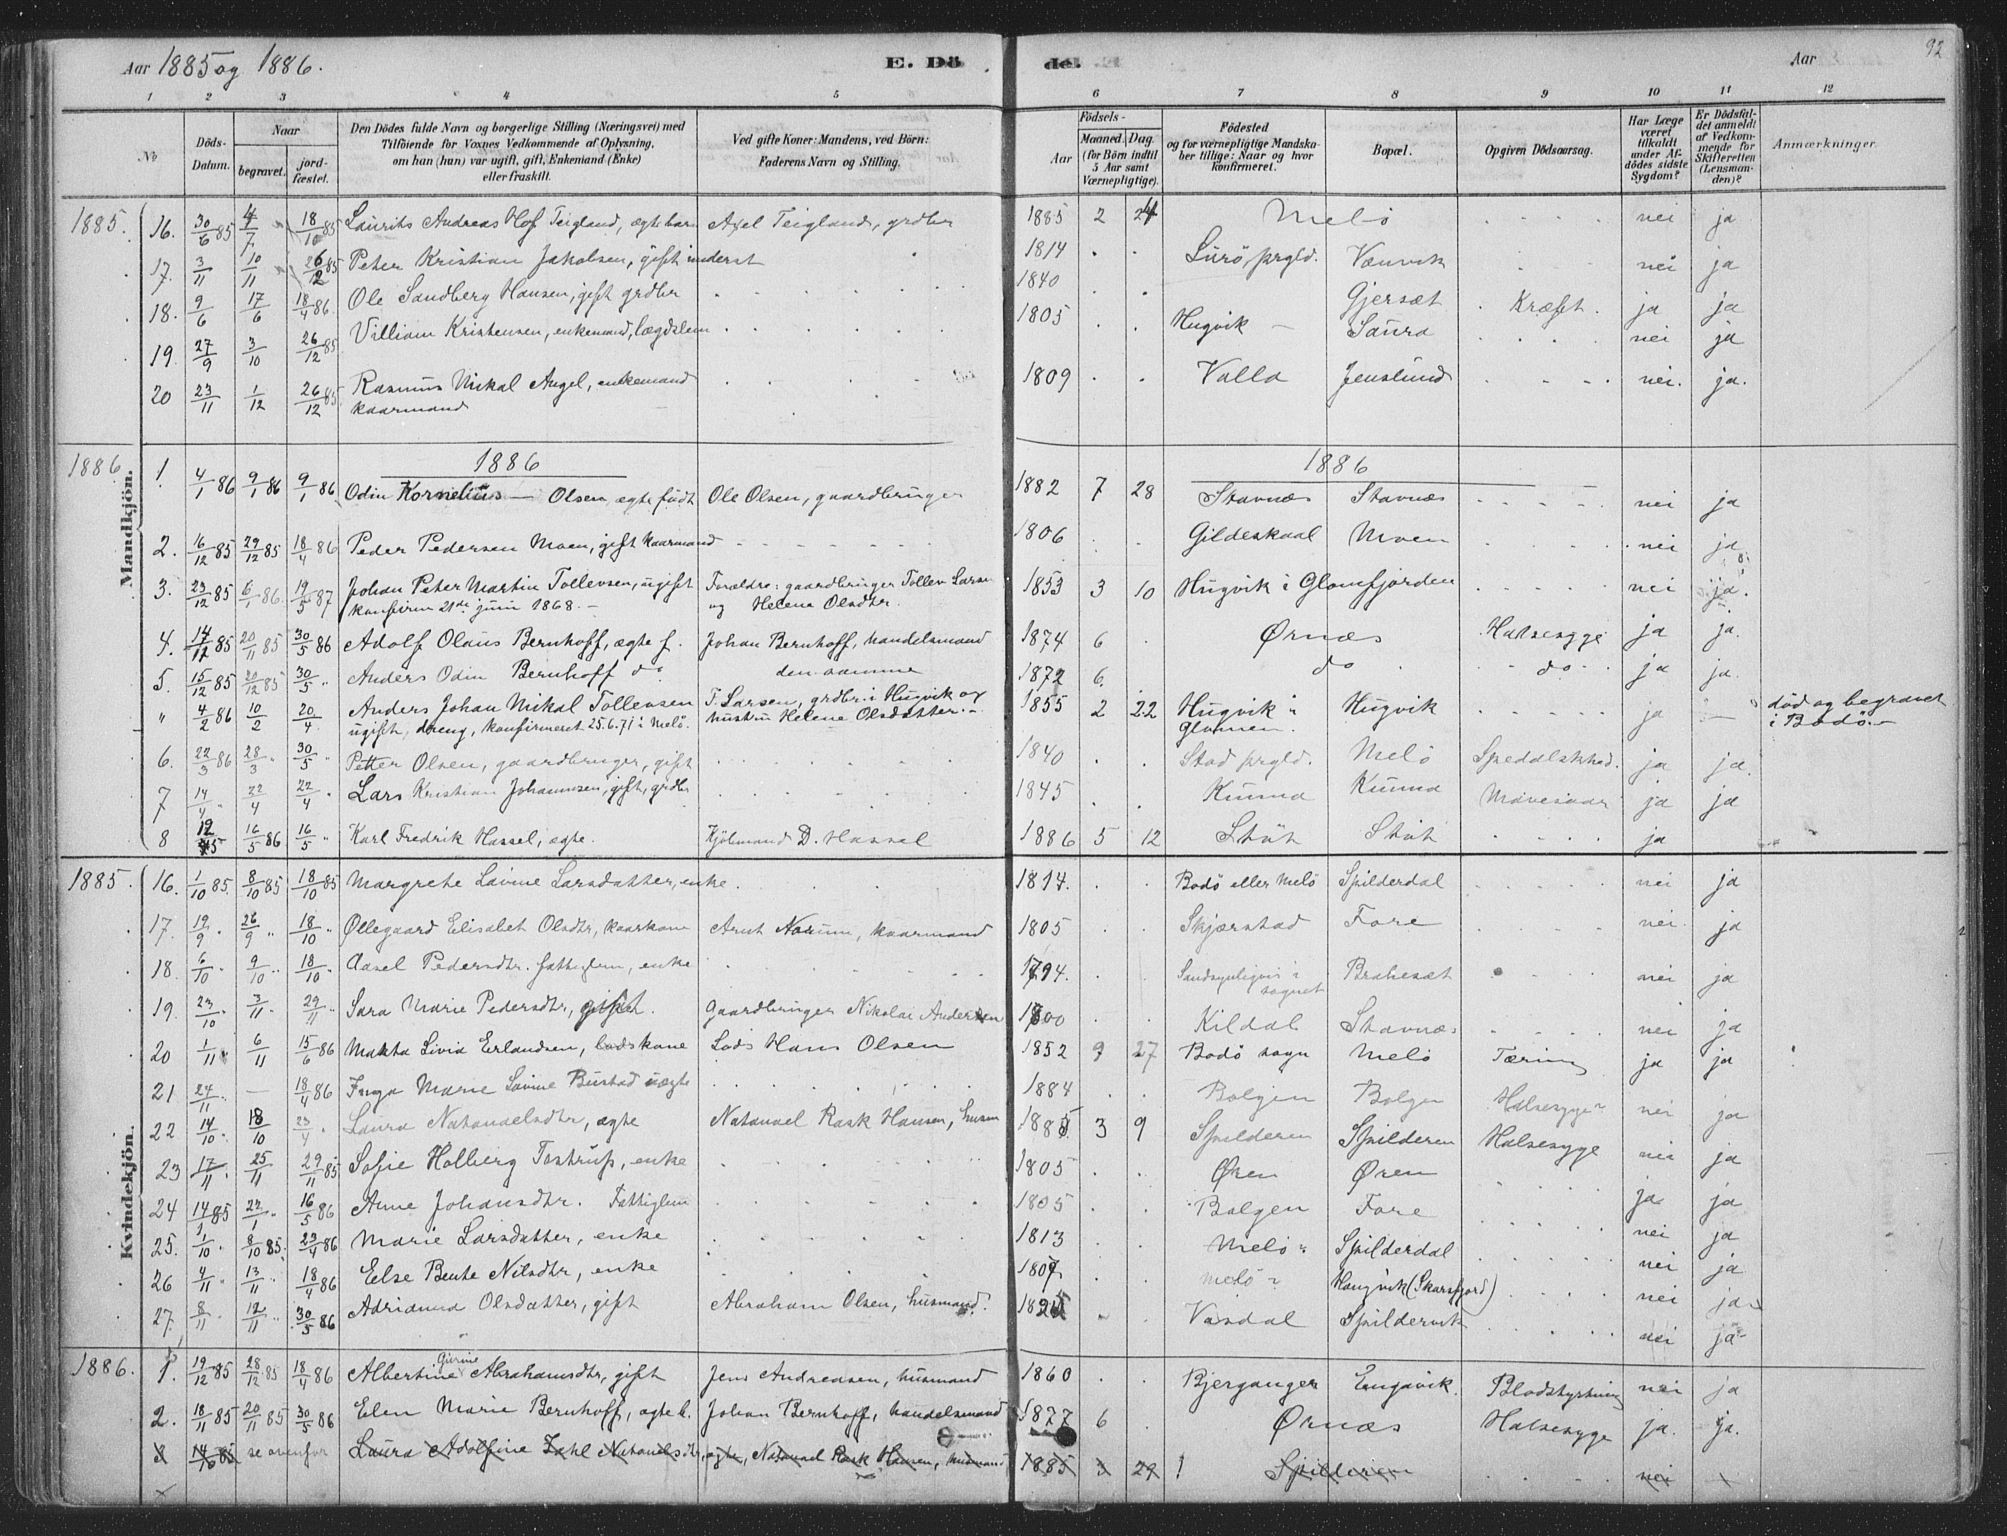 Aar 1885 og 1886. E. Dö de. Aar 92
1 2 3 4 5 6 7 8 9 10 11 12
No Döds-Datum. Naar begravet. jordfæstet. Den Dödes fulde Navn og borgerlige Stilling (Næringsvei) med Tilföiende for Voxnes Vedkommende af Oplysning, om han (hun) var ugift, gift, Enkemand (Enke) eller fraskilt. Ved gifte Koner: Mandens, ved Börn: Faderens Navn og Stilling. Födsels- Aar Maaned. Dag. (for Börn indtil 5 Aar samt Værnepligtige). Födested og for værnepligtige Mandskaber tillige: Naar og hvor konfirmeret. Bopæl. Opgiven Dödsaarsag. Har Læge været tilkaldt under Afdödes sidste Sygdom? Er Dödsfaldet anmeldt af Vedkommende for Skifteretten (Lensmanden)? Anmærkninger.
Mandkjön.
1885. 16. 30/6 85 4/7 18/10 85 Laurits Andreas Hof Teigland, ægte barn Axel Teigland, grdbr 1885 2 24 Melö nei ja
17. 3/11 10/11 26/12 85 Peter Kristian Jakobsen, gift inderst 1814 Lurö, prgld. Vænvik nei ja
18. 9/6 17/6 18/4 86 Ole Sandberg Hansen, gift grdbr 1840 Gjersæt Kræft. ja ja
19. 27/9 3/10 26/12 85 Villiam Kristensen, enkemand, lægdslem 1805 Hugvik — Saura nei ja
20 23/11 1/12 26/12 85 Rasmus Mikal Angel, enkemand 1809 Valla Jenslund nei. ja.
kaarmand
1886. 1886 1886
1. 4/1 86 9/1 86 9/1 86 Odin Kornelius — Olsen, ægte født Ole Olsen, gaardbruger 1882 7 28 Stavnæs Stavnæs nei ja
2. 16/12 85 29/12 85 18/4 86 Peder Pedersen Moen, gift kaarmand 1806 Gildeskaal Moen nei ja
3. 23/12 85 6/1 86 19/5 87 Johan Peter Martin Tollevsen, ugift Forældre: gaardbruger Tollev Larsen 1853 3 10 Hugvik i Glomfjorden nei ja.
konfirm 21de juni 1868. — og Helena Olsdtr.
4. 14/12 85 20/11 85 30/5 86 Adolf Olaus Bernhoff, ægte f. Johan Bernhoff, handelsmand 1874 6 Ørnæs Halsesyge ja ja.
5. 15/12 85 20/12 85 30/5 " Anders Odin Bernhoff do den samme 1872 6. do do ja ja.
" 4/2 86 10/2 20/4 Anders Johan Mikal Tollevsen T. Larsen, grdbr i Hugvik og 1855 2 22 Hugvik i Hugvik ja — død og begravet
ugift, dreng, konfirmeret 25.6.71 i Melö. hustru Helene Olsdatter. Glommen. i Bodö.
6. 22/3 86 28/3 " 30/5 " Petter Olsen, gaardbruger, gift 1840 Stod prgld. Melö Spedalskhed. ja ja.
7 14/4 " 22/4 22/4 " Lars Kristian Johannsen, gift, grdbr 1845 Kunna Kunna Mavesaar ja ja
8 12/5 16/5 86 16/5 " Karl Fredrik Hassel, ægte. Kjöbmand D. Hassel 1886 5 12 Stöt Stöt ja
Kvindekjön.
1885. 16. 1/10 85. 8/10 85 18/10 85 Margrete Lavine Larsdatter, enke 1814. Bodö eller Melö Spilderdal nei ja
17. 19/9 " 26/9 " 18/10 " Øllegaard Elisabet Olsdtr, kaarkone Arnt Norum, kaarmand 1805 Skjærstad Fore nei. ja
18. 6/10 " 9/10 " 18/10 " Aasel Pedersdtr. fattiglem, enke 1794. Sandsynligvis i sognet Brahesæt nei ja
19. 23/10 3/11 " 29/11 " Sara Marie Pedersdtr, gift. Gaardbruger Nikolai Andersen 1800 Kildal Stavnæs nei ja
20 1/11 6/11 15/6 86 Makta Livia Erlandsen, lodskone Lods Hans Olsen 1852 9 27 Bodö sogn Melö Tæring ja ja
21 24/11 " — 18/4 86 Inga Marie Lovine Bustad uægte 1884 Bolgen Bolgen Halsesyge nei ja
22 14/10 " 18/10 23/4 " Laura Natanaelsdtr, ægte Natanael Rask Hansen, husm 1885 3 9 Spilderen Spilderen Halsesyge nei ja
23 17/11 " 25/11 29/11 85 Sofie Holberg Tostrup, enke 1805 Øren Øren ja ja
24 14/1 85 22/1 " 16/5 86 Anne Johansdtr. Fattiglem 1805 Bolgen Fore nei ja
25. 1/10 " 8/10 85. 23/4 86 Marie Larsdatter, enke 1813 Melö Spilderdal nei ja
26 4/11 " 13/11 " 18/4 86 Else Bente Nilsdtr, enke 1807 Melö Haugvik (Skarsfjord) nei ja
27. 8/11 " 12/11 " 30/5 86 Adrianna Olsdatter, gift Abraham Olsen, husmand. Vasdal Spildervik nei ja
1886. 1. 19/12 85 28/12 85 18/4 86 Albertine Gurine Abrahamsdtr, gift Jens Andreasen, husmand 1860 Bjerganger Engavik. Blodstyrtning nei ja
2. 18/11 85 20/11 85 30/5 86 Elen Marie Bernhoff, ægte b. Johan Bernhoff, handelsmand 1877 6 Ørnæs Halsesyge ja. ja.
3 14/10 85 se ovenfor Laura Adolfine Dahl Natanaelsdtr, ægte, Natanael Rask Hansen, husmand 1885 3 29 Spilderen nei